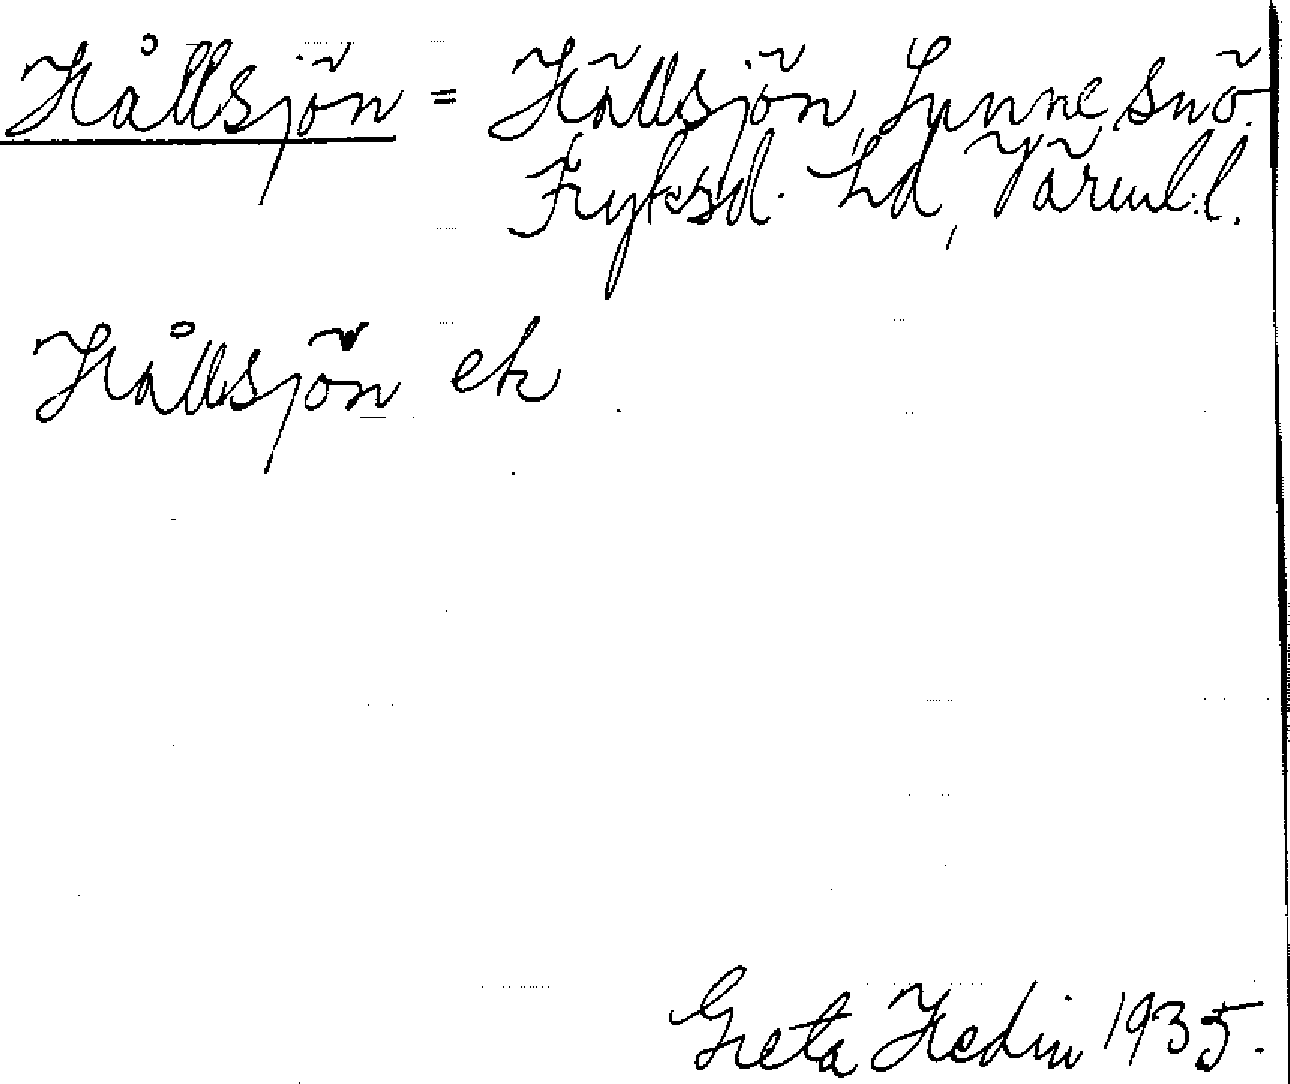 Hållsjön = Hällsjön, Lysvik sn
Fryksd. hd, Värml.l.
Hållsjön ek
Greta Hedin 1935.